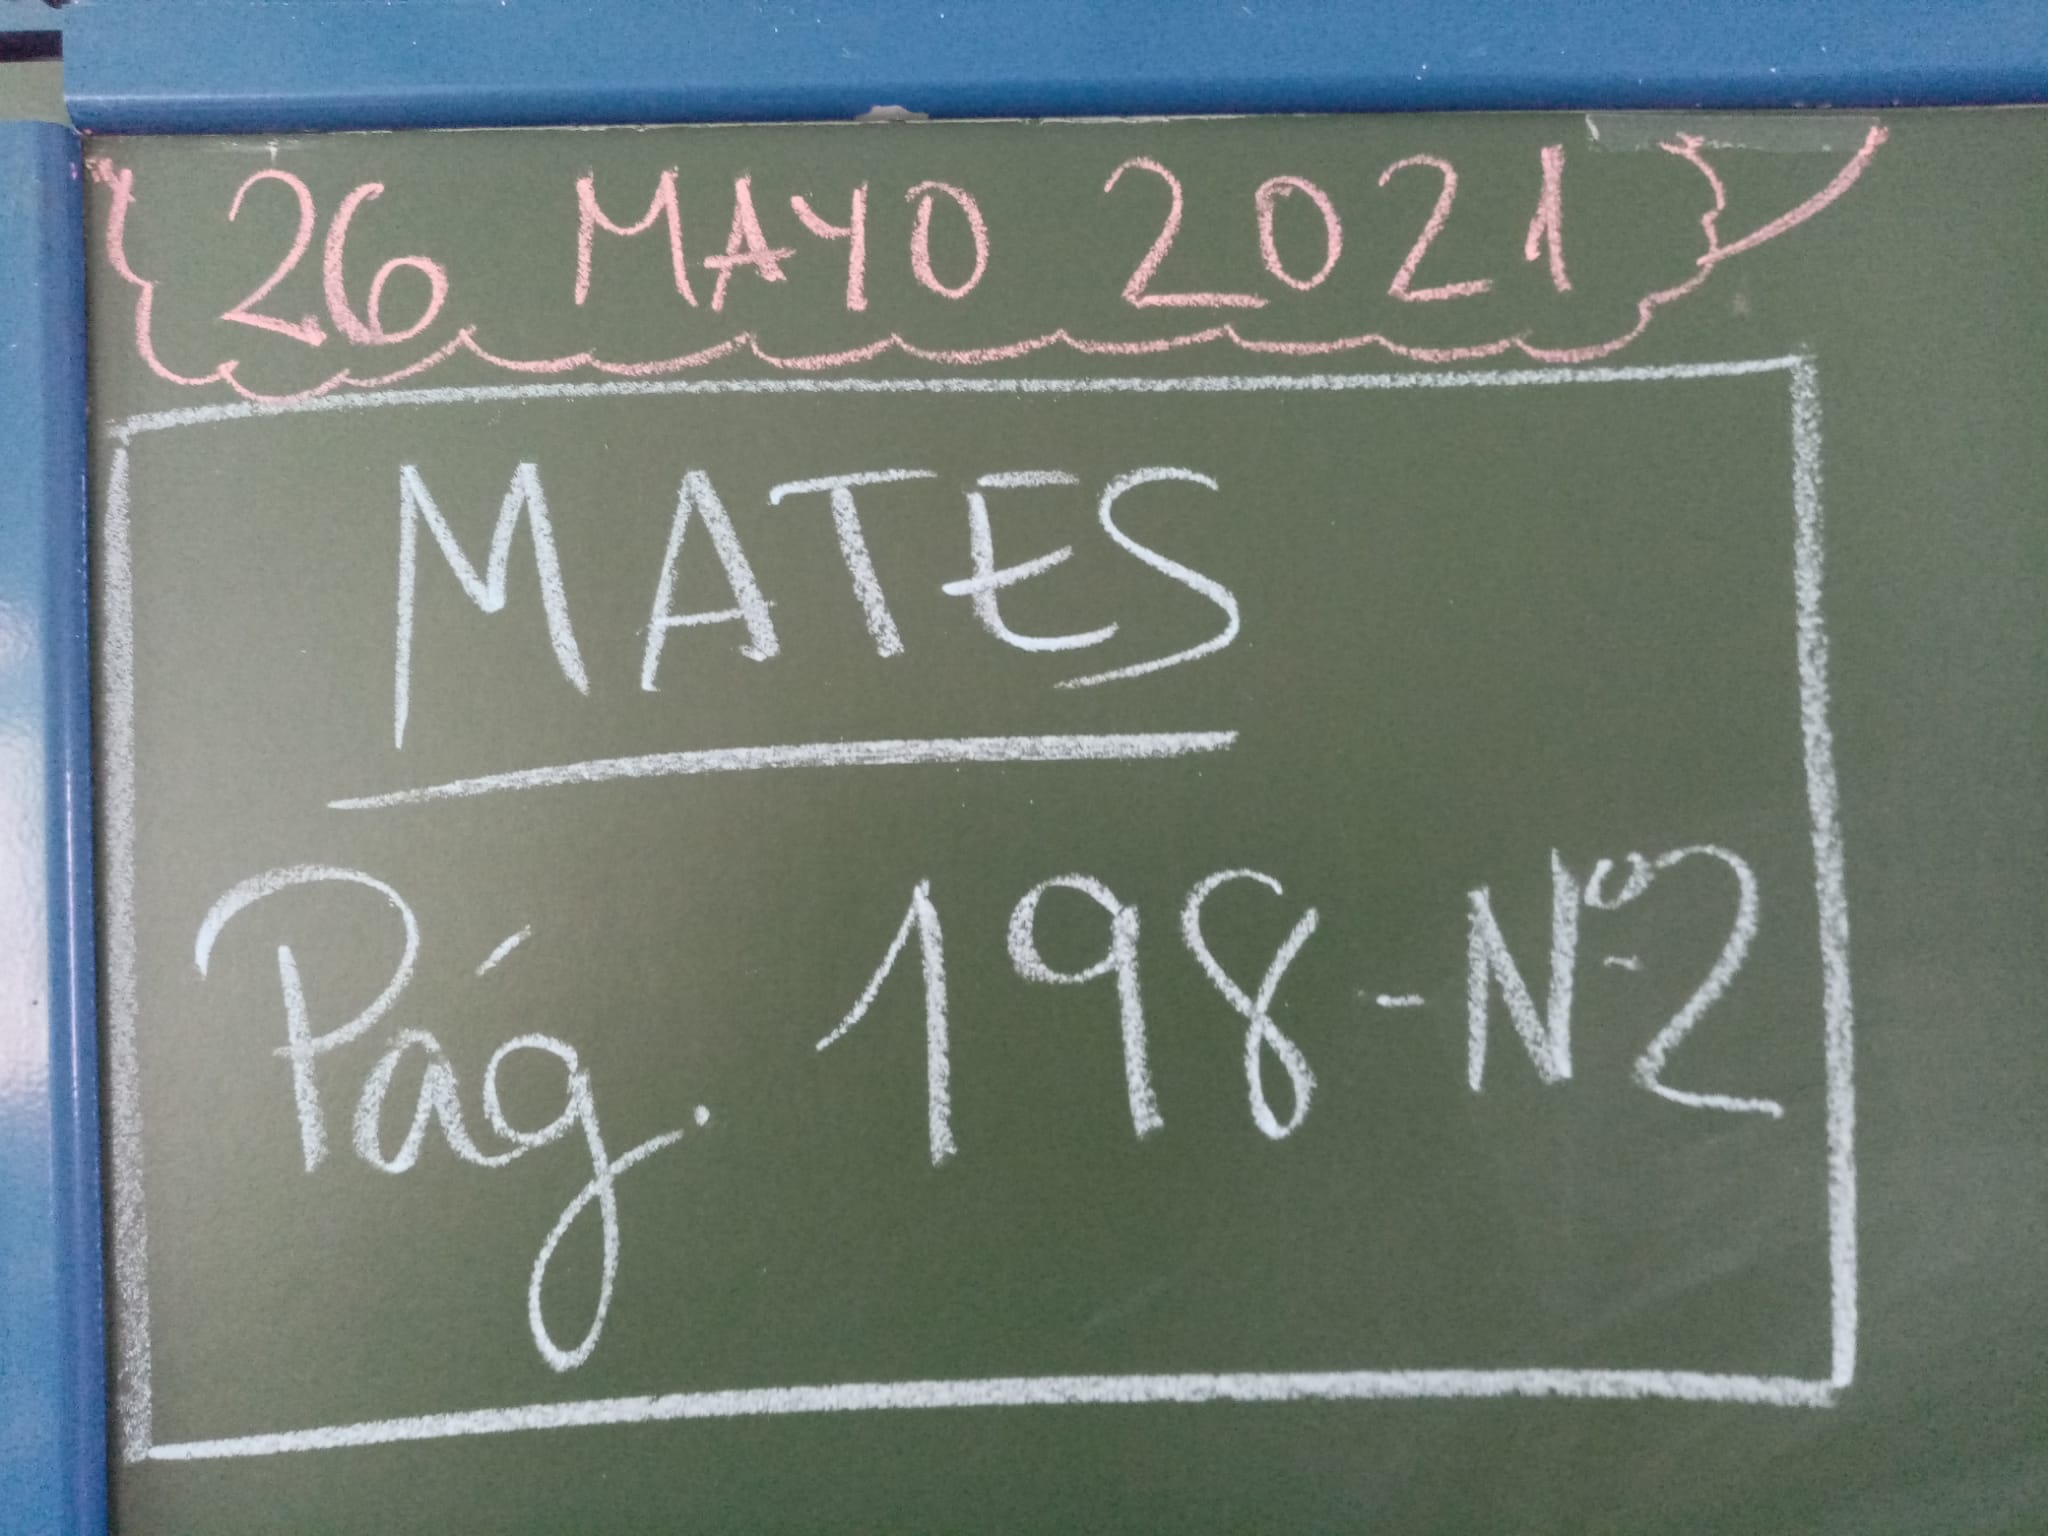 26 MAYO 2021
MATES
Pág. 198-Nº2